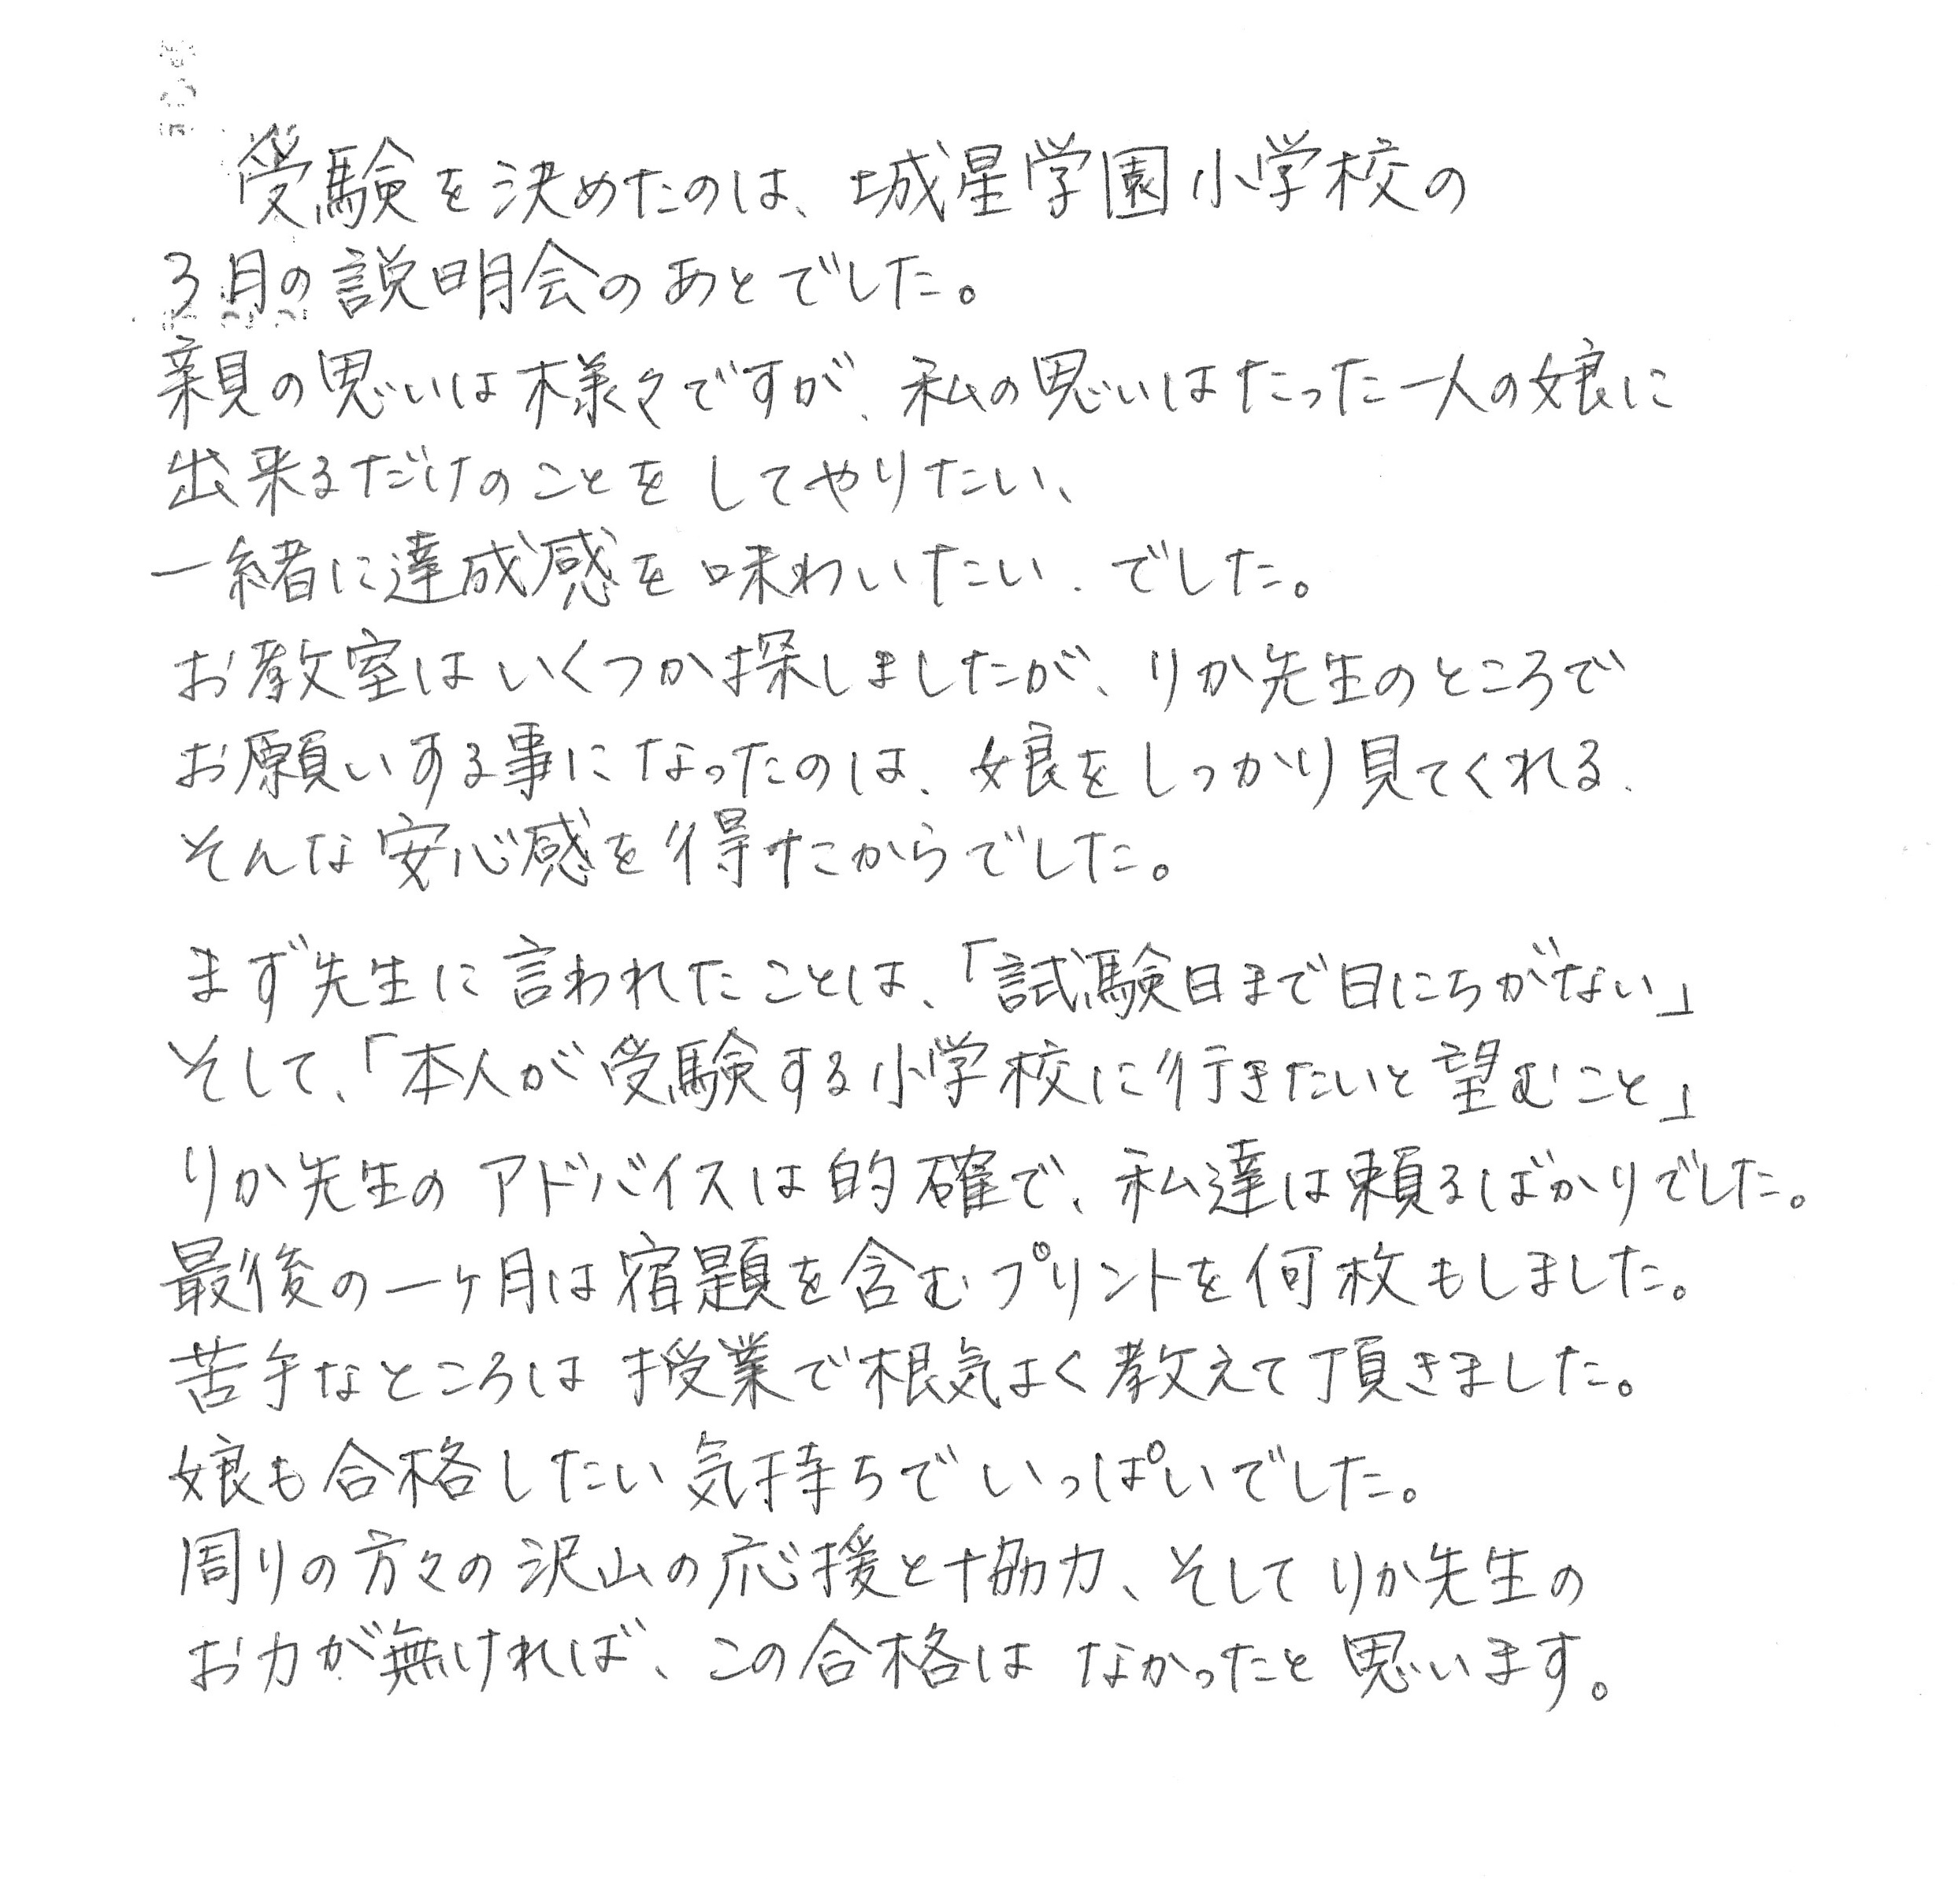 受験を決めたのは、城星学園小学校の
3月の説明会のあとでした。
親の思いは様々ですが、私の思いはたった一人の娘に
出来るだけのことをしてやりたい、
一緒に達成感を味わいたい、でした。
お教室はいくつか探しましたが、りか先生のところで
お願いする事になったのは、娘をしっかり見てくれる、
そんな安心感を得たからでした。
まず先生に言われたことは、「試験日まで日にちがない」
そして、「本人が受験する小学校に行きたいと望むこと」
りか先生のアドバイスは的確で、私達は頼るばかりでした。
最後の一ヶ月は宿題を含むプリントを何枚もしました。
苦手なところは授業で根気よく教えて頂きました。
娘も合格したい気持ちでいっぱいでした。
周りの方々の沢山の応援と協力、そしてりか先生の
お力が無ければ、この合格はなかったと思います。